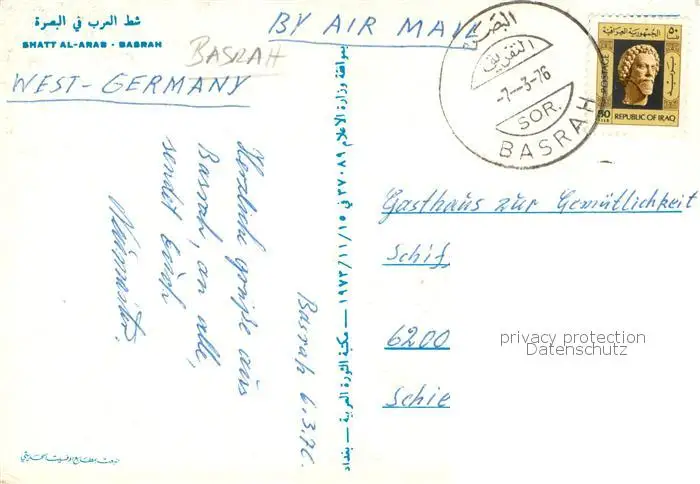 شط العرب في البصرة
SHATT AL-ARAB - BASRAH
BASRAH
BY AIR MAIL
WEST-GERMANY
البصرة
التفريق
-7--3-76
SOR.
BASRAH
الجمهورية العراقية
٥٠
POSTAGE
50
FILS
REPUBLIC OF IRAQ
Basrah 6.3.76.
Herzliche Grüße aus
Basrah, an alle,
sendet Euch
بموافقة وزارة الاعلام ٣٧٠٨٩ في ١٩٧٣/١١/١٥ — مكتبة الثورة العربية — بغداد
Gasthaus zur Gemütlichkeit
Schif
6200
Schie
privacy protection
Datenschutz